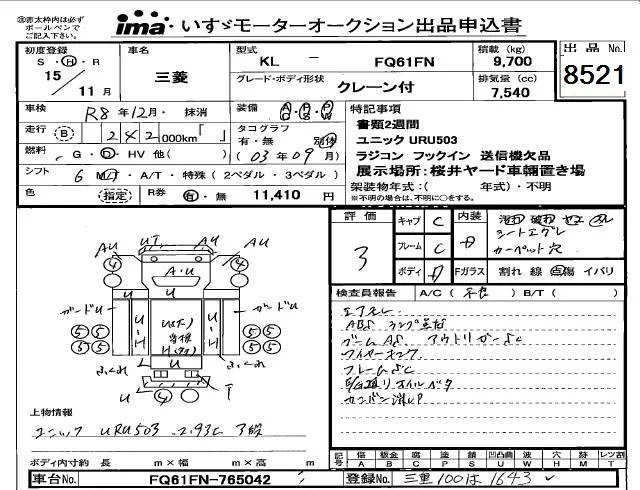 ㊟赤太枠内は必ず
ボールペンで
ご記入下さい。
ima いすゞモーターオークション出品申込書
初度登録 車名 型式 積載 (kg) 出品No.
S・H・R 三菱 KL － FQ61FN 9,700 8521
15 / 11月 グレード・ボディ形状 クレーン付 排気量 (cc) 7,540
車検 R8年12月・抹消 装備 A/C・P/S・P/W 特記事項
走行 B 242,000km「 」 タコグラフ 有・無 別体 書類2週間
燃料 G・D・HV 他( ) (03年09月) ユニック URU503
シフト 6 M/T・A/T・特殊(2ペダル・3ペダル) ラジコン フックイン 送信機欠品
色 (指定) R券 有・無 11,410円 展示場所:桜井ヤード車輌置き場
架装物年式:( 年式)・不明
※不明の場合は、不明に○をする。
評価 キャブ C 内装
3 フレーム C シートスグレ
カーペット穴
ボディ Fガラス 割れ 線 点傷 イバリ
検査員報告 A/C(不良) B/T( )
エアモレ
ABS ランプ点灯
ブームAS アウトリガーSC
ワイヤー
フレームSC
オイルベタ
カンバン消し
AU UT AU AU
④ ④
A・U
U
ガードU U-H U-H ガードU
⑤⑤ ⑤⑤
⑤⑤ ⑤⑤
ふくれ U ふくれ
U T
④
上物情報
ユニック URU503 2.93t 3段
ボディ内寸約 長 m×幅 m×高 m
記号 傷 A 板金 B 腐 C 塗 P サビ S 凹凸曲 U 凹 W 穴 H 跡 M レツ割 T
車台No. FQ61FN-765042 登録No. 三重100は1643